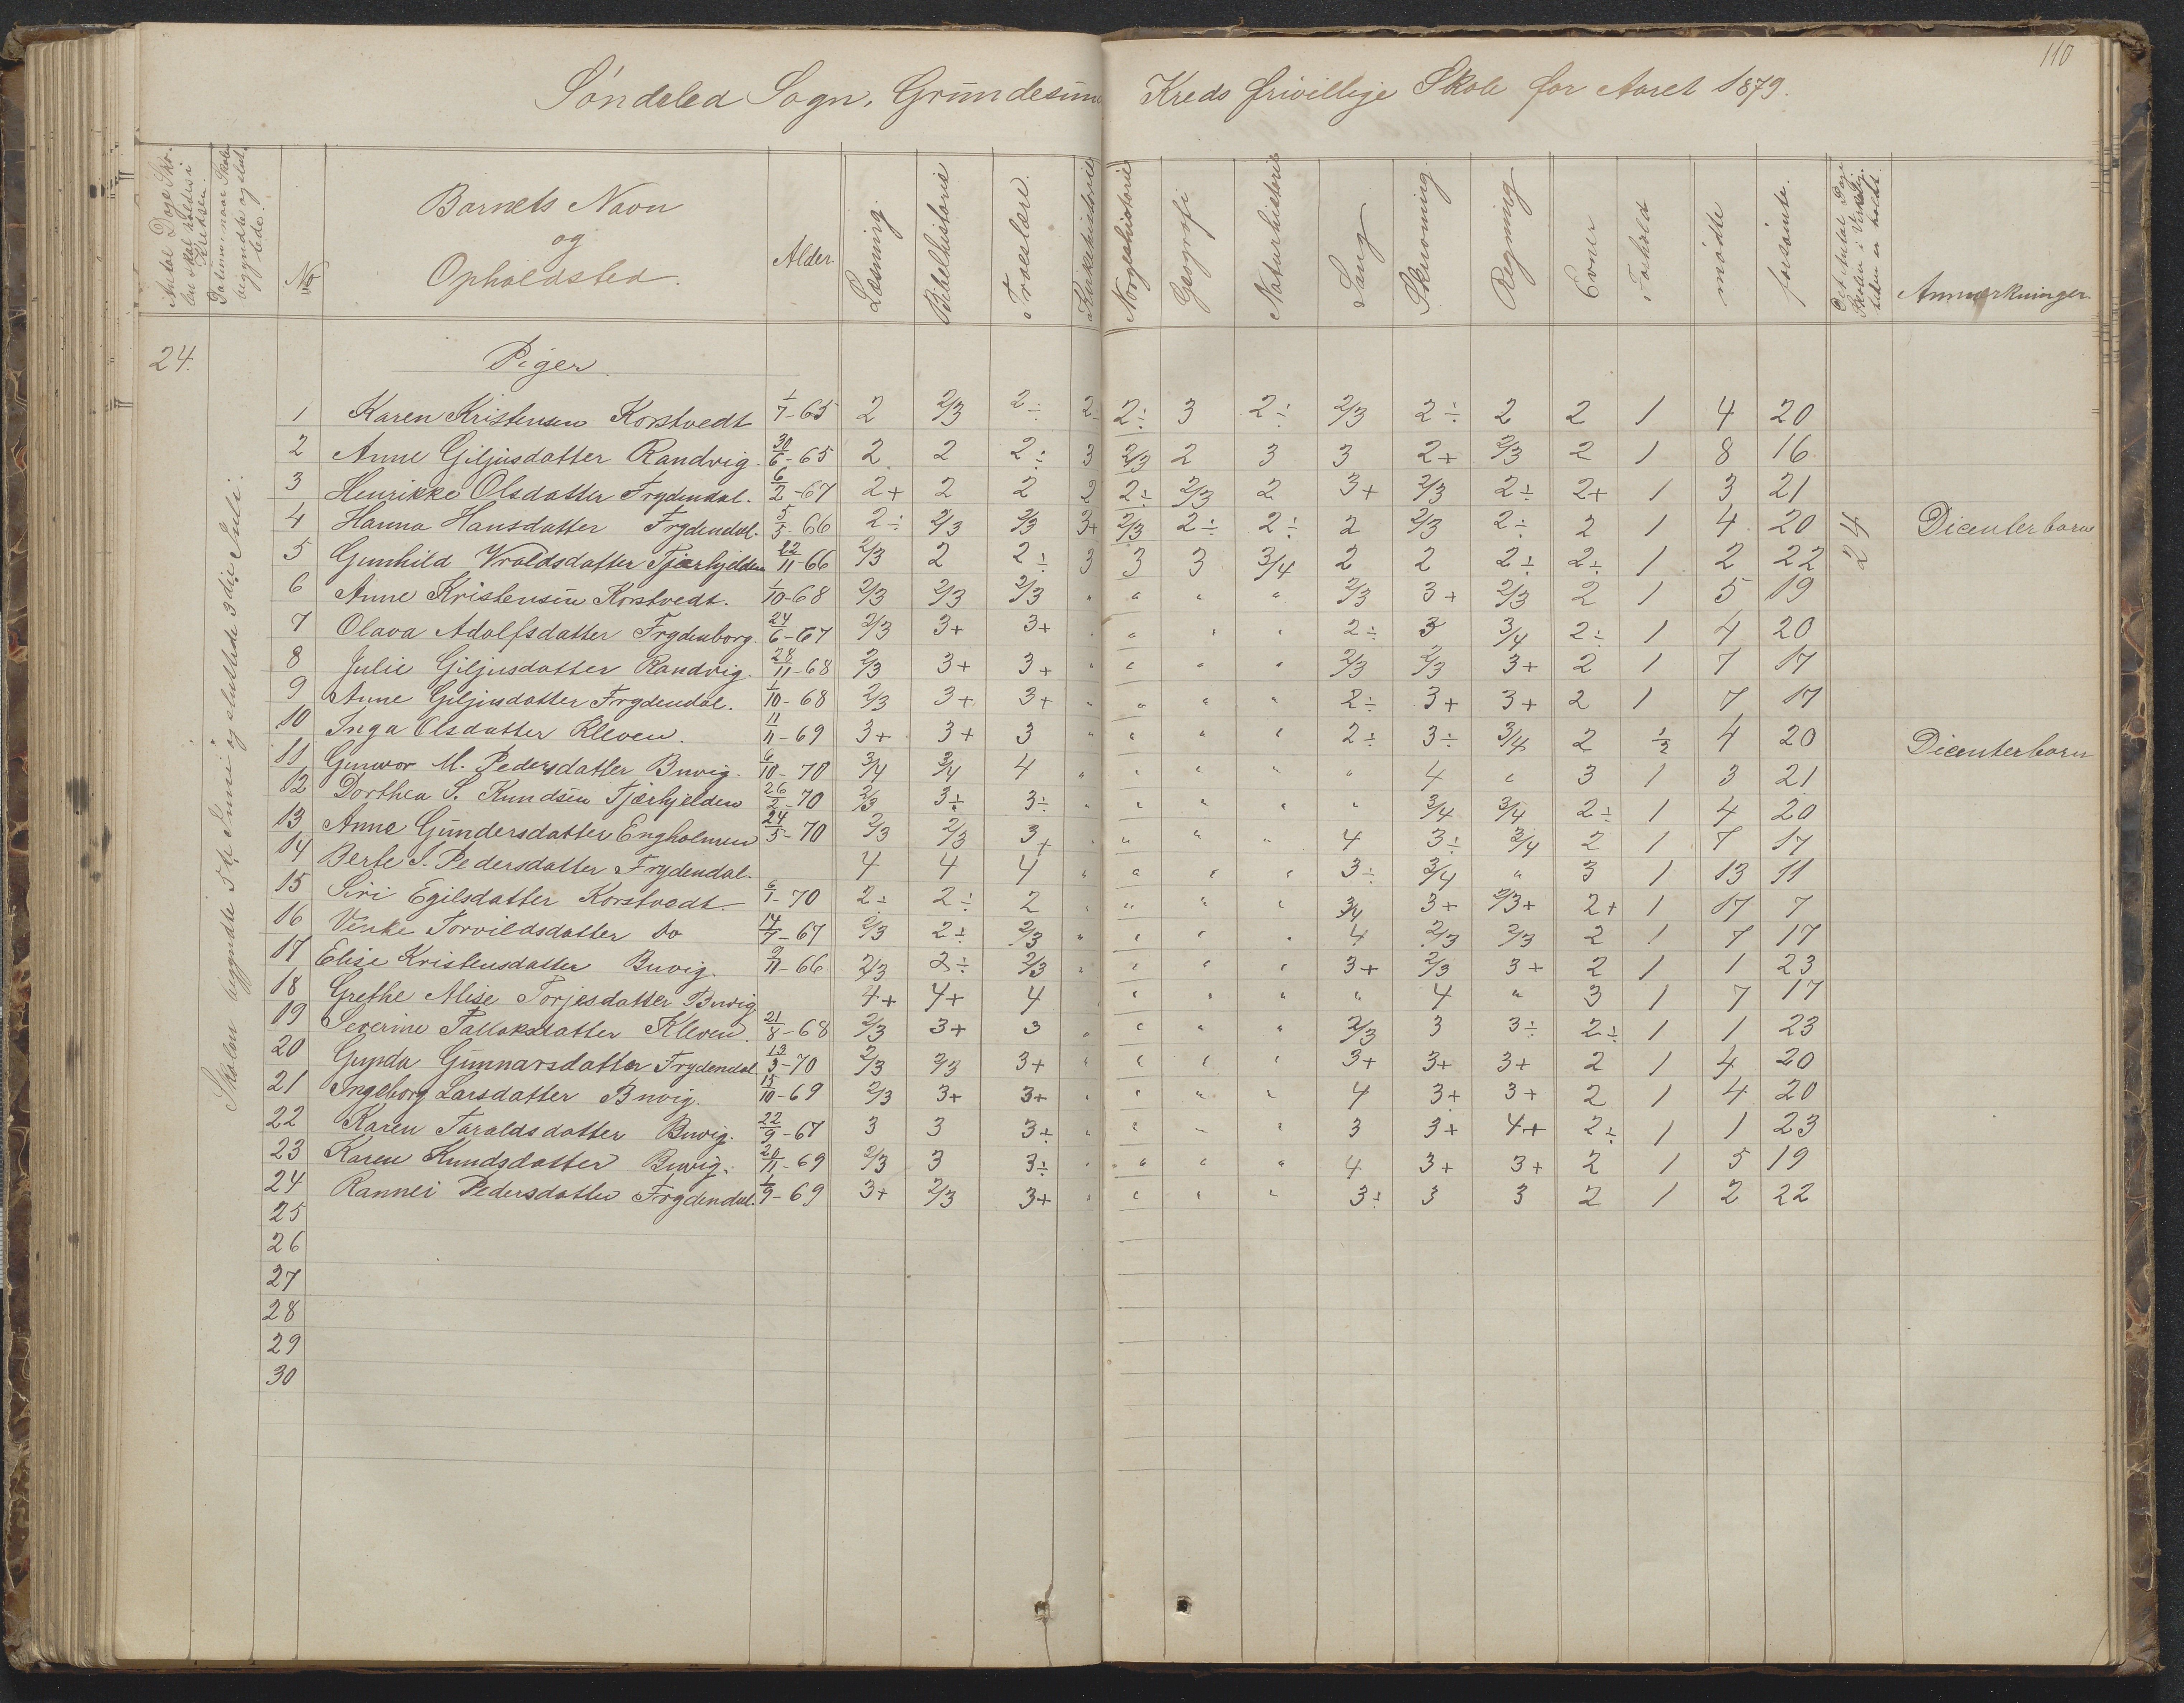 110
Söndeled Sogn, Grundesund Kreds frivillige Skole for Aaret 1879.
Antal Dage Skolen skal holdes i Kredsen.
Datum, naar Skolen begyndte og sluttede.
No
Barnets Navn og Opholdssted.
Alder.
Læsning.
Bibelhistorie
Troeslære.
Kirkehistorie
Norgeshistorie
Geografi
Naturhistorie
Sang
Skrivning
Regning
Evner
Forhold
mødte
forsömte.
Det Antal Dage Skolen i Virkelig- heden er holdt.
Anmærkninger.
24.
Skolen begyndte 5te Juni og sluttede 3die Juli.
Piger.
1 Karen Kristensen Korstvedt 1/7-65 2 2/3 2÷ 2÷ 2÷ 3 2÷ 2/3 2÷ 2 2 1 4 20
2 Anne Giljusdatter Randvig. 30/6-65 2 2 2÷ 3 2/3 2 3 3 2+ 2/3 2 1 8 16
3 Henrikke Olsdatter Frydendal. 6/2-67 2+ 2 2 2 2÷ 2/3 2 3+ 2/3 2÷ 2+ 1 3 21
4 Hanna Hansdatter Frydendal. 5/5-66 2÷ 2/3 2/3 3+ 2/3 2÷ 2÷ 2 2/3 2÷ 2 1 4 20 24 Dicenterbarn
5 Gunhild Vroldsdatter Tjærhjelden 22/11-66 2/3 2 2÷ 3 3 3 3/4 2 2 2÷ 2÷ 1 2 22
6 Anne Kristensen Korstvedt. 1/10-68 2/3 2/3 2/3 " " " " 2/3 3+ 2/3 2 1 5 19
7 Olava Adolfsdatter Frydenborg. 24/6-67 2/3 3+ 3+ " " " " 2÷ 3 3/4 2÷ 1 4 20
8 Julie Giljusdatter Randvig. 28/11-68 2/3 3+ 3+ " " " " 2/3 2/3 3+ 2 1 7 17
9 Anne Giljusdatter Frydendal. 1/10-68 2/3 3+ 3+ " " " " 2÷ 3+ 3+ 2 1 7 17
10 Inga Olsdatter Kleven. 11/11-69 3+ 3+ 3 " " " " 2÷ 3÷ 3/4 2 1/2 4 20 Dicenterbarn
11 Gunvor M. Pedersdatter Buvig. 6/10-70 3/4 3/4 4 " " " " " 4 " 3 1 3 21
12 Dorthea S. Kundsen Tjærhjelden 26/2-70 2/3 3÷ 3÷ " " " " " 3/4 3/4 2÷ 1 4 20
13 Anne Gundersdatter Engholmen 24/5-70 2/3 2/3 3+ " " " " 4 3÷ 3/4 2 1 7 17
14 Berte S. Pedersdatter Frydendal. 4 4 4 " " " " 3÷ 3/4 " 3 1 13 11
15 Siri Egilsdatter Korstvedt 6/1-70 2÷ 2÷ 2 " " " " 3/4 3+ 2/3+ 2+ 1 17 7
16 Venke Torvildsdatter do 14/7-67 2/3 2÷ 2/3 " " " " 4 2/3 2/3 2 1 7 17
17 Elise Kristensdatter Buvig. 9/11-66 2/3 2÷ 2/3 " " " " 3+ 2/3 3+ 2 1 1 23
18 Grethe Alise Torjesdatter Buvig 4+ 4+ 4 " " " " " 4 " 3 1 7 17
19 Severine Tallaksdatter Kleven. 21/8-68 2/3 3+ 3 " " " " 2/3 3 3÷ 2÷ 1 1 23
20 Gunda Gunnarsdatter Frydendal 13/3-70 2/3 2/3 3+ " " " " 3+ 3+ 3+ 2 1 4 20
21 Ingeborg Larsdatter Buvig. 15/10-69 2/3 3+ 3+ " " " " 4 3+ 3+ 2 1 4 20
22 Karen Taraldsdatter Buvig. 22/9-67 3 3 3÷ " " " " 3 3+ 4+ 2÷ 1 1 23
23 Karen Kundsdatter Buvig. 20/11-69 2/3 3 3÷ " " " " 4 3+ 3+ 2 1 5 19
24 Rannei Pedersdatter Frydendal. 1/9-69 3+ 2/3 3+ " " " " 3÷ 3 3 2 1 2 22
25
26
27
28
29
30